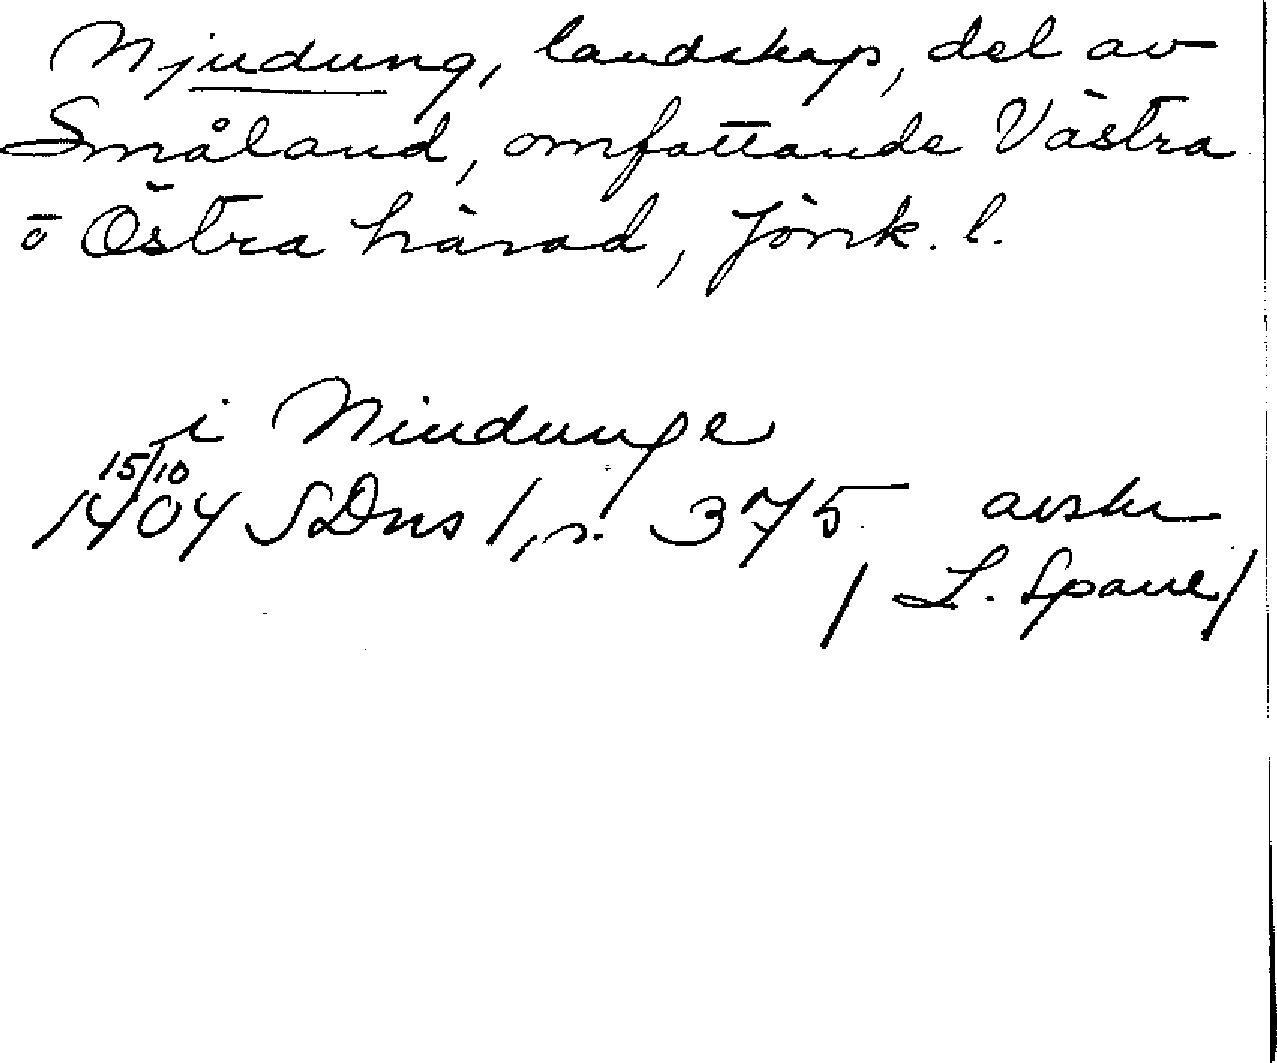 Njudung, landskap, del av
Småland, omfattande Västra
o Östra härad, Jönk. l.
i Niudunge
15/10
1404 SDns 1, s. 375 avskr
/ L. Spaul /